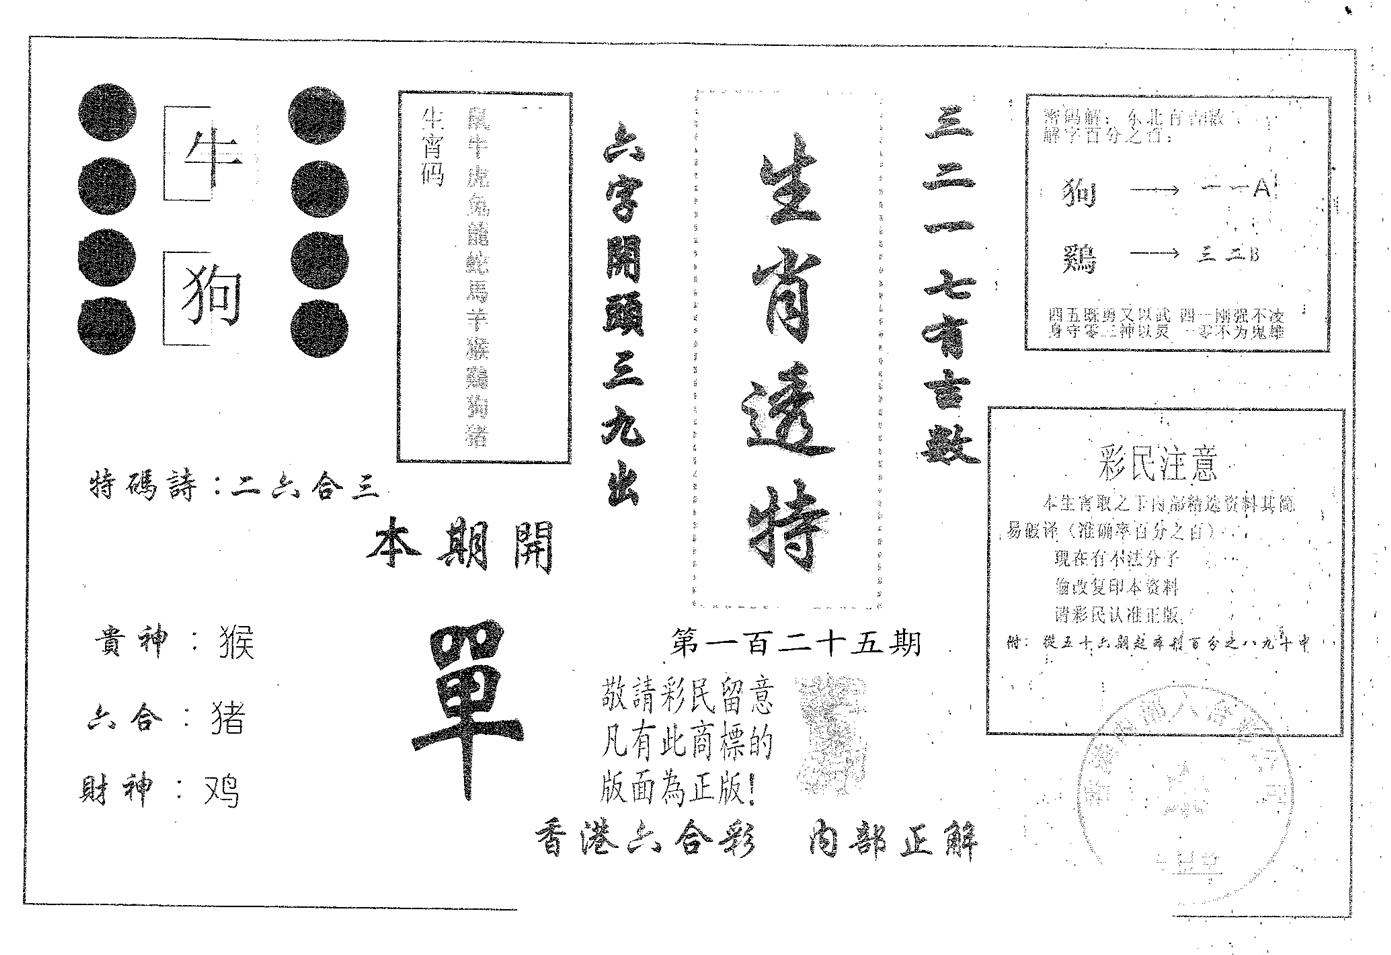 牛
狗
生宵码
鼠牛虎兔龍蛇馬羊猴鷄狗猪
六字開頭三九出
生肖透特
三二一七有吉数
密码解：东北肖吉数
解字百分之百：
狗 → 一一A
鷄 → 三二B
四五既勇又以武 四一刚强不凌
身守零三神以灵 一零不为鬼雄
特碼詩：二六合三
本期開
單
貴神：猴
六合：猪
財神：鸡
第一百二十五期
敬請彩民留意
凡有此商標的
版面為正版！
香港六合彩 内部正解
彩民注意
本生宵取之于内部精选资料其简
易破译（准确率百分之百）
现在有不法分子
偷改复印本资料
请彩民认准正版.
附：從五十六期起每到百分之八九十中